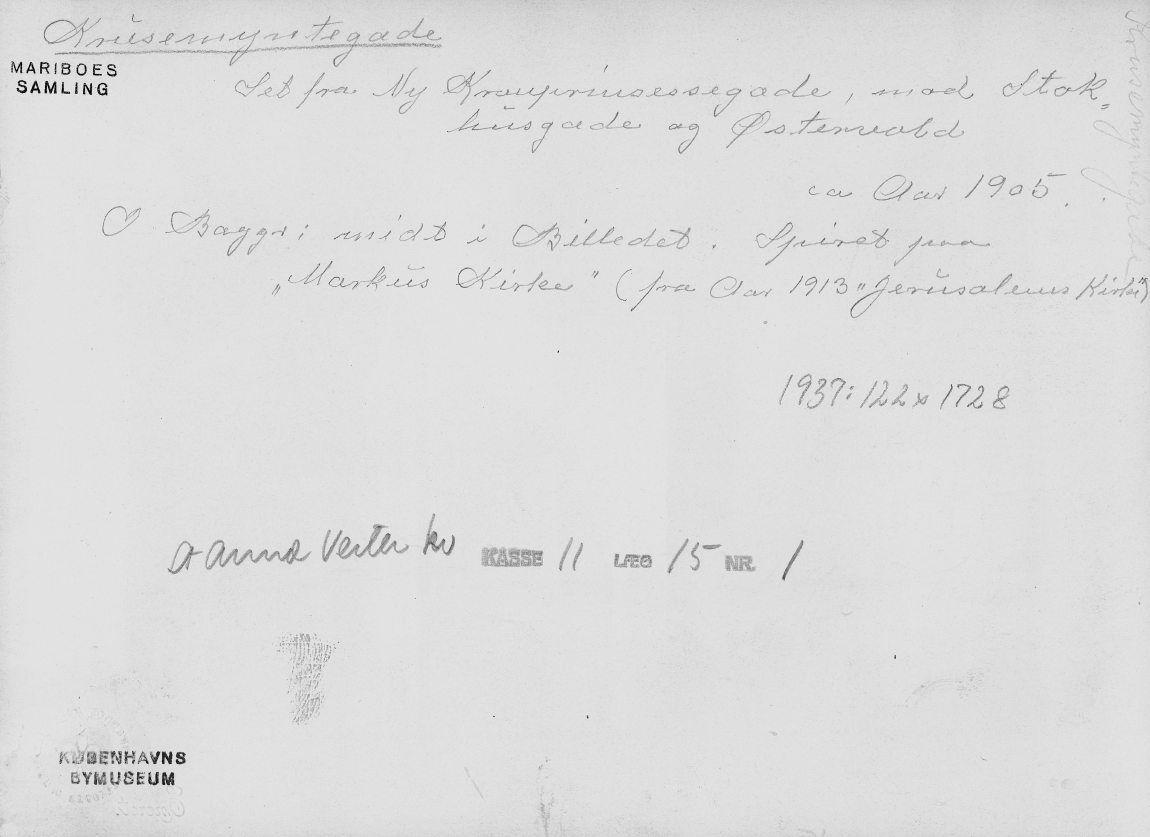 Krusemyntegade
MARIBOES
SAMLING
Set fra Ny Kronprinsessegade, mod Stok-
husgade og Østervold
ca Aar 1905.
I Baggr: midt i Billedet. Spiret paa
„Markus Kirke" (fra Aar 1913 "Jerusalems Kirke")
1937:122x1728
Anna Vester kv KASSE 11 LÆG 15 NR. 1
KØBENHAVNS
BYMUSEUM
Krusemyntegade